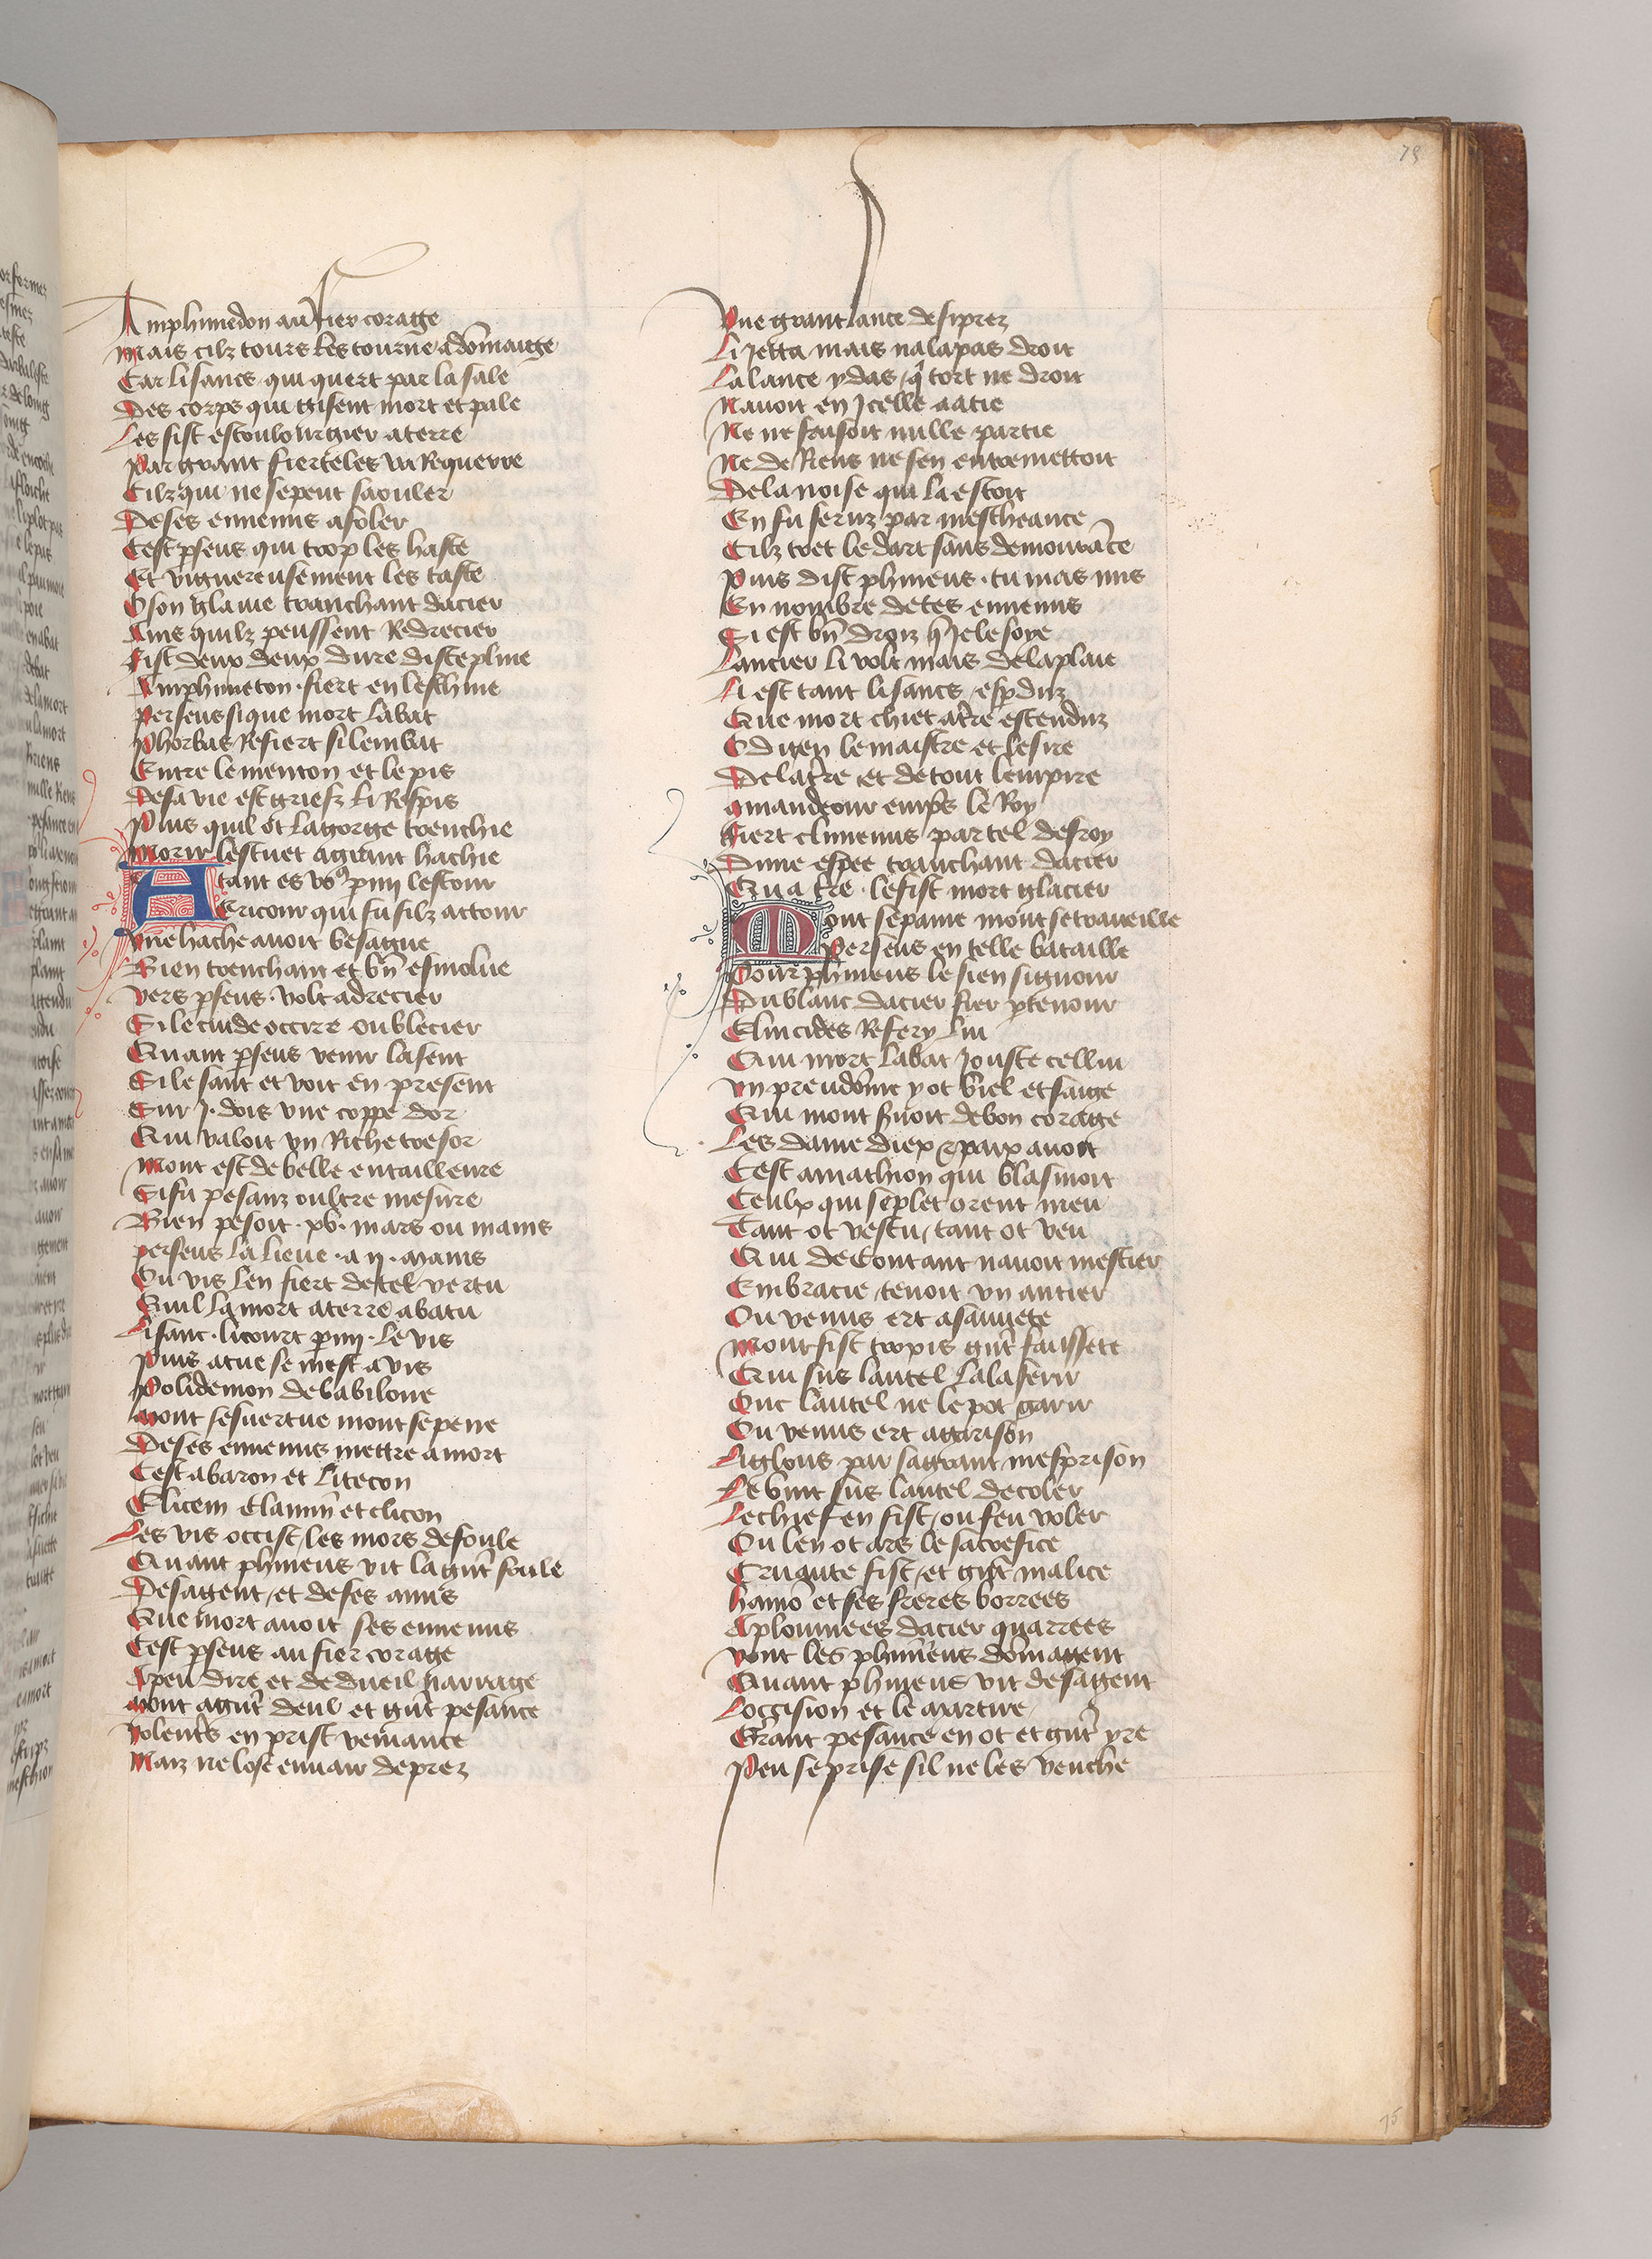 79
Amphimedon au fier corage
Mais cilz tours les tourne a dõmaige
Car li sancs qui quert par la sale
Des corps qui gisent mort et pale
Les fist escoulourgier a terre
Par grant fierte les va Requerre
Cilz qui ne se peut saouler
De ses ennemis afoler
Cest pseus qui trop les haste
Et viguereusement les taste
O son glaiue tranchant dacier
Ains quilz peussent Redrecier
Fist deux deux dure discepline
Amphimeton . fiert en leschine
Perseus si que mort labat
Phorbas Refiert si lembat
Entre le menton et le pis
De sa vie est griefz li Respis
Puis quil ot la gorge trenchie
Morir lestuet a grant hachie
Atant es vo9 pmy lestour
Ericour qui fu filz actour
Vne hache auoit besague
Bien trenchant et bñ esmolue
Vers pseus . volt adrecier
Si le cuide occire ou blecier
Quant pseus venir lasent
Si le saut et voit en present
Sur .j. dois vne coppe dor
Qui valoit vn Riche tresor
Mont est de belle entailleure
Si fu pesanz oultre mesure
Bien pesoit . xv . mars ou mains
Perseus la lieue . a ij . mains
Ou vis len fiert de tel vertu
Quil la mort a terre abatu
Li sanc . li court pmy . le vis
Puis a tue se mest avis
Polidemon de babilone
Mont sesuertue mont se pene
De ses ennemis mettre a mort
Cest abaron et litecon
Elicem elamin et cliton
Les vis occist / les mors defoule
Quant phineus vit la grãt foule
De sa gent / et de ses amis
Que mort auoit ses ennemis
Cest pseus au fier corage
A peu dire et de dueil nairage
Mont a grãt deul et grãt pesance
Volentes en prist veniance
Maiz ne lose enuair de prez
Vne grant lance de siprez
Li jetta mais nala pas droit
La lance ydas / q̃ tort ne droit
Nauoit en jcelle aatie
Ne ne faisoit nulle partie
Ne de Riens ne sen entremettoit
De la noise qui la estoit
En fu feruz par mescheance
Cilz tret le dart sans demourãce
Puis dist phineus . tu mas mis
En nombre de tes ennemis
Si est bñ droiz q̃ je le soye
Lancier li volt mais de la plaie
Li est tant li sancs espduz
Que mort chiet a tre estenduz
Oditen le maistre et le sire
De la tre et de tout lempire
A mandeour emps le Roy
Fiert climenus par tel desroy
Dune espee tranchant dacier
Qua tre . le fist mort glacier
Mont se paine mont se traueille
Perseus en telle bataille
Pour phineus le sien signour
Du blanc dacier fier ptenour
Elincides Refery lui
Qui mort labat jouste cellui
Vn preudõme y ot viel et saige
Qui mont seruoit de bon corage
Les dame diex et paix auoit
Cest amathion qui blasmoit
Ceulx qui se plet orent meu
Tant ot vescu / tant ot veu
Qui de contant nauoit mestier
Embracie tenoit vn autier
Ou venus ert a sauuete
Mont fist tropis grãt faussete
Qui sus lautel lala ferir
Onc lautel ne le pot garir
Ou venus ert a garison
Li glous par sa grant mesprison
Le vint sus lautel decoler
Le chief en fist / ou feu voler
Ou len ot ars le sacrefice
Cruaute fist / et grãt malice
Hamõ et ses freres borrees
A plommees dacier quarrees
Vont les phineus dõmagent
Quant phineus vit de sa gent
Loccision et le martire
Grant pesance en ot et grãt yre
Peu se prise sil ne les venche
75